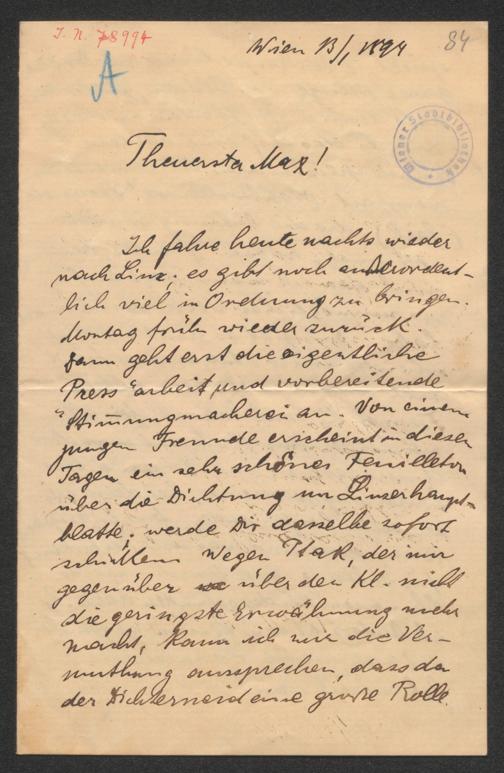 I. N. 78994
A
Wien 13/1 1894
84
Wiener Stadtbibliothek
Theuerster Max!
Ich fahre heute nachts wieder
nach Linz; es gibt noch außerordent-
lich viel in Ordnung zu bringen.
Montag früh wieder zurück.
Dann geht erst die eigentliche
Press"arbeit und vorbereitende
"Stimmungmacherei an. Von einem
jungen Freunde erscheint in diesen
Tagen ein sehr schönes Feuilleton
über die Dichtung im Linzerhaupt-
blatte; werde Dir dasselbe sofort
schicken. Wegen Ptak, der mir
gegenüber über den Kl. nicht
die geringste Erwähnung mehr
macht, kann ich nur die Ver-
muthung aussprechen, dass da
der Dichterneid eine große Rolle